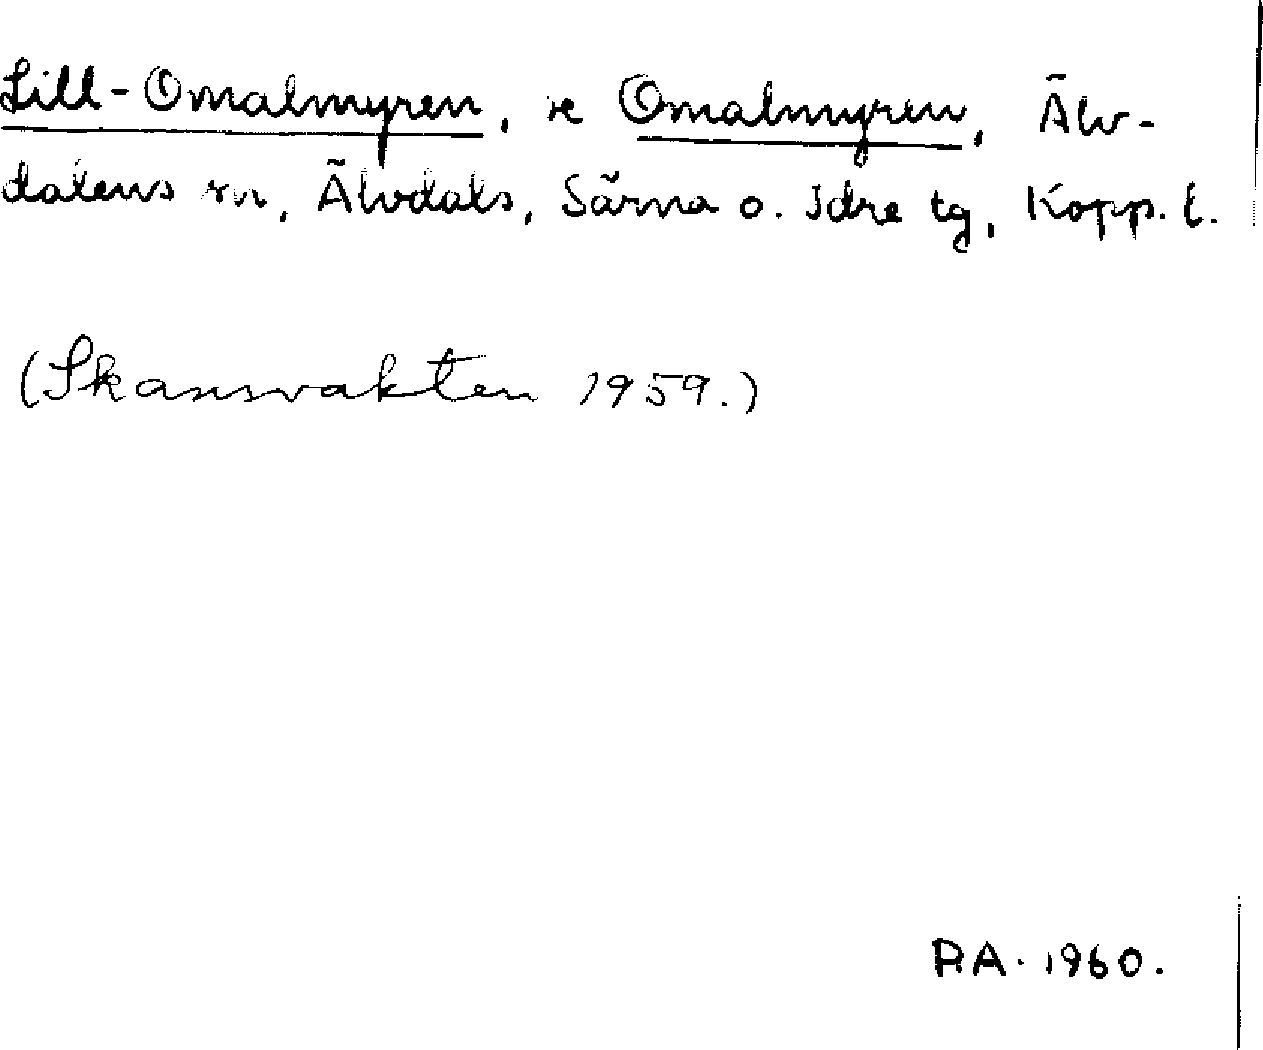 Lill-Omalmyren, se Omalmyren, Älv-
dalens sn, Älvdals, Särna o. Idre tg, Kopp. l.
(Skansvakten 1959.)
R.A. 1960.